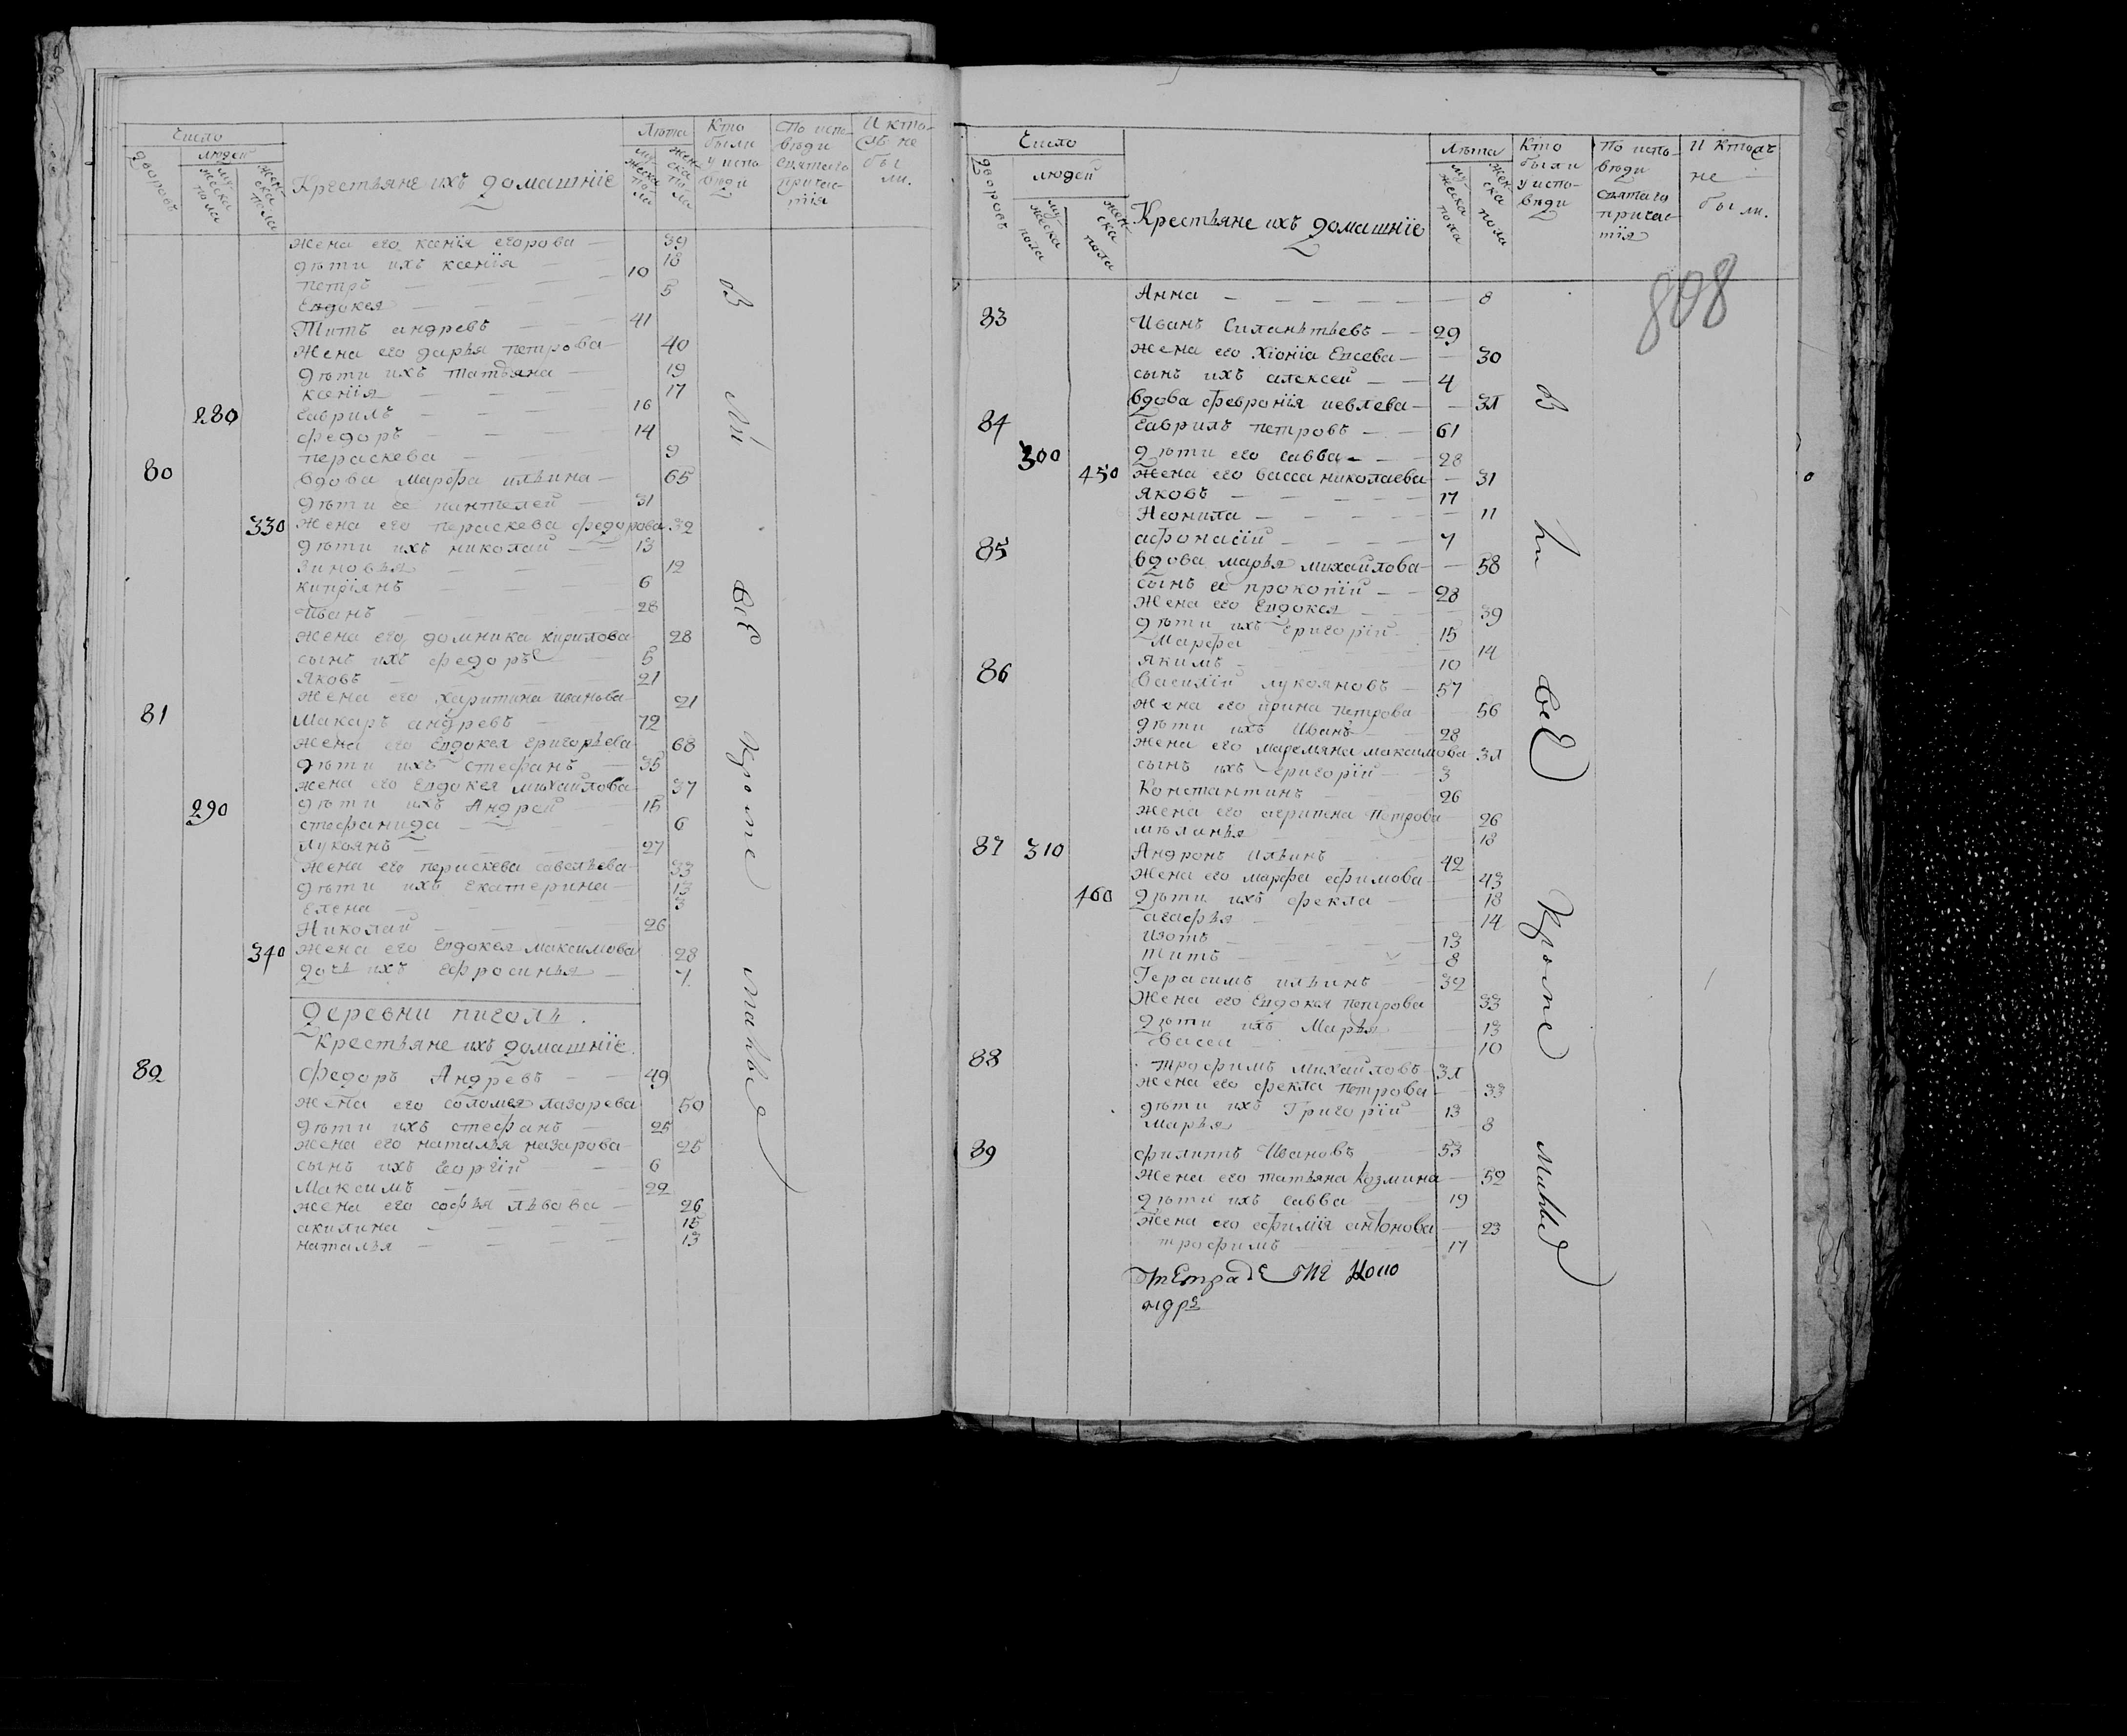 Число
Лѣта
Кто были у испо- вѣди
По испо- вѣди святаго причас- тія
И кто- лѣ не бы ли.
дворовъ
людей
му- жеска пола
жен- ска пола
Крестьяне ихъ домашніе
му- жеска по- ла
жен- ска по- ла
жена его ксенія егорова — 39
дѣти ихъ ксенія — 18
петръ — 10
Евдокея — 5
Титъ андревъ — 41
жена его дарья петрова — 40
дѣти ихъ татьяна — 19
ксенія — 17
280 гаврилъ — 16
федоръ — 14
пераскева — 9
80 вдова марфа ильина — 65
дѣти ее пантелей — 31
330 жена его пераскева федорова 32
дѣти ихъ николай — 13
Зиновья — 12
кипріянъ — 6
Иванъ — 28
жена его домника кирилова 28
сынъ ихъ федоръ — 5
яковъ — 21
жена его харитина иванова 21
81 Макаръ андревъ — 72
жена его Евдокея григорьева 68
дѣти ихъ стефанъ — 35
жена его Евдокея михайлова 37
290 дѣти ихъ Андрей 15
стефанида — 6
лукоянъ — 27
жена его пераскева савельева 33
дѣти ихъ екатерина — 13
Елена — 3
Николай — 26
340 жена его Евдокея максимова 28
дочь ихъ ефросинья — 7
деревни пиголь.
Крестьяне ихъ домашніе.
82 Федоръ Андревъ — 49
жена его соломея лазорева 50
дѣти ихъ стефанъ — 25
жена его наталья назарова 25
сынъ ихъ георгій — 6
Максимъ — 22
жена его софья львова — 26
акилина — 15
наталья — 13
всѣ кромѣ
Число
Лѣта
Кто были у испо- вѣди
По испо- вѣди святаго причас- тія
И кто лѣ не были.
дворовъ
людей
му- жеска пола
жен- ска пола
Крестьяне ихъ домашніе
му- жеска пола
жен- ска пола
808
Анна — 8
83 Иванъ Силантьевъ — 29
жена его Хіонія Евсева — 30
сынъ ихъ алексей — 4
вдова феврония иевлева — 3л
84 Гаврилъ петровъ — 61
300 дѣти его савва — 28
450 жена его васса николаева — 31
яковъ — 17
Неонила — 11
афонасій — 7
85 вдова марья михайлова — 58
сынъ ее прокопій — 28
жена его Евдокея — 39
дѣти ихъ григорій — 15
Марфа — 14
якимъ — 10
86 Василій лукояновъ — 57
жена его ирина петрова 56
дѣти ихъ Иванъ — 28
жена его маремяна максимова 3л
сынъ ихъ григорій — 3
Константинъ — 26
жена его агрипена Петрова 26
мѣланья — 18
87 310 Андронъ ильинъ — 42
жена его марфа ефимова — 43
460 дѣти ихъ фекла — 18
агафья — 14
изотъ — 13
титъ — 8
Герасимъ ильинъ — 32
Жена его Евдокея петрова 33
дѣти ихъ Марья — 13
васса — 10
88 трофимъ михайловъ — 3л
жена его фекла петрова — 33
дѣти ихъ Григорій — 13
марья — 8
89 филиппъ Ивановъ — 53
жена его татьяна козмина — 52
дѣти ихъ савва — 19
жена его ефимія антонова — 23
трофимъ — 17
всѣ кромѣ